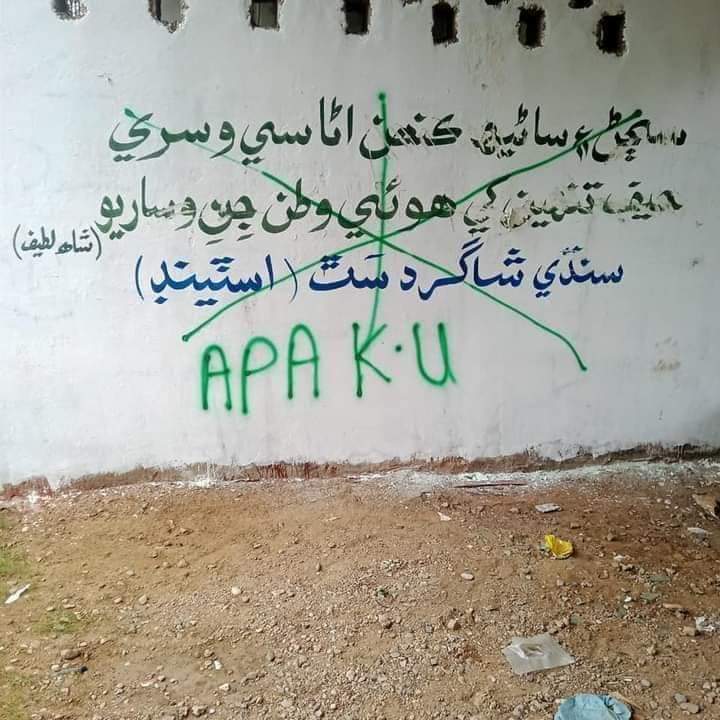 سڄڻ ۽ ساڻيهہ ڪنهن اڻاسي وسري
حيف تنهين کي هوئي وطن جِنِ وساريو
(شاھ لطيف)
سنڌي شاگرد سَٿ (اسٽينڊ)
APA K.U